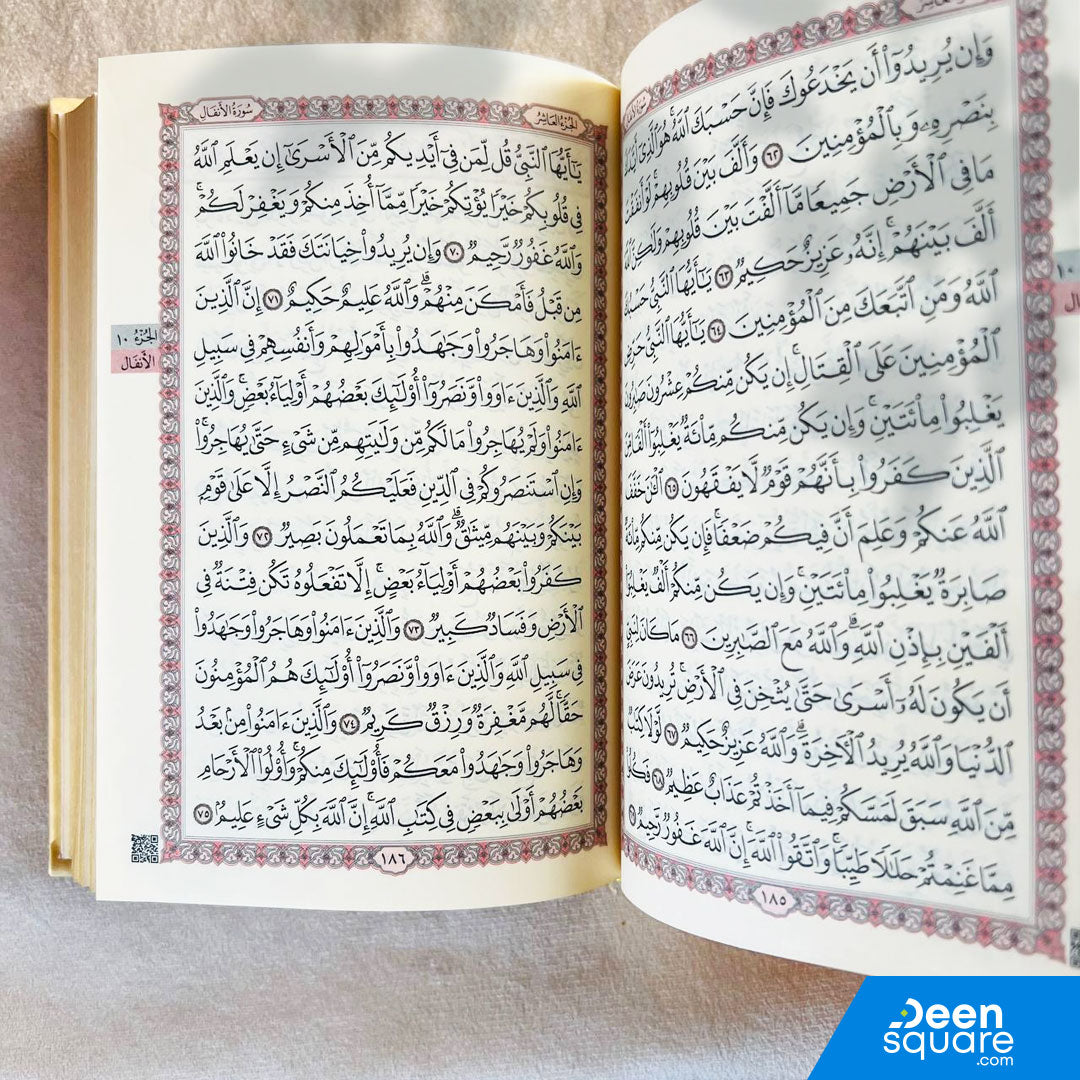 الجزء العاشر
وَإِن يُرِيدُوٓا۟ أَن يَخْدَعُوكَ فَإِنَّ حَسْبَكَ ٱللَّهُ هُوَ ٱلَّذِىٓ
بِنَصْرِهِۦ وَبِٱلْمُؤْمِنِينَ ٦٢ وَأَلَّفَ بَيْنَ قُلُوبِهِمْ لَوْ أَنفَقْتَ
مَا فِى ٱلْأَرْضِ جَمِيعًا مَّآ أَلَّفْتَ بَيْنَ قُلُوبِهِمْ وَلَٰكِنَّ ٱللَّهَ
أَلَّفَ بَيْنَهُمْ إِنَّهُۥ عَزِيزٌ حَكِيمٌ ٦٣ يَٰٓأَيُّهَا ٱلنَّبِىُّ حَسْبُكَ
ٱللَّهُ وَمَنِ ٱتَّبَعَكَ مِنَ ٱلْمُؤْمِنِينَ ٦٤ يَٰٓأَيُّهَا ٱلنَّبِىُّ حَرِّضِ
ٱلْمُؤْمِنِينَ عَلَى ٱلْقِتَالِ إِن يَكُن مِّنكُمْ عِشْرُونَ صَٰبِرُونَ
يَغْلِبُوا۟ مِا۟ئَتَيْنِ وَإِن يَكُن مِّنكُم مِّا۟ئَةٌ يَغْلِبُوٓا۟ أَلْفًا مِّنَ
ٱلَّذِينَ كَفَرُوا۟ بِأَنَّهُمْ قَوْمٌ لَّا يَفْقَهُونَ ٦٥ ٱلْـَٰٔنَ خَفَّفَ
ٱللَّهُ عَنكُمْ وَعَلِمَ أَنَّ فِيكُمْ ضَعْفًا فَإِن يَكُن مِّنكُم مِّا۟ئَةٌ
صَابِرَةٌ يَغْلِبُوا۟ مِا۟ئَتَيْنِ وَإِن يَكُن مِّنكُمْ أَلْفٌ يَغْلِبُوٓا۟
أَلْفَيْنِ بِإِذْنِ ٱللَّهِ وَٱللَّهُ مَعَ ٱلصَّٰبِرِينَ ٦٦ مَا كَانَ لِنَبِىٍّ
أَن يَكُونَ لَهُۥٓ أَسْرَىٰ حَتَّىٰ يُثْخِنَ فِى ٱلْأَرْضِ تُرِيدُونَ عَرَضَ
ٱلدُّنْيَا وَٱللَّهُ يُرِيدُ ٱلْـَٔاخِرَةَ وَٱللَّهُ عَزِيزٌ حَكِيمٌ ٦٧ لَّوْلَا كِتَٰبٌ
مِّنَ ٱللَّهِ سَبَقَ لَمَسَّكُمْ فِيمَآ أَخَذْتُمْ عَذَابٌ عَظِيمٌ ٦٨ فَكُلُوا۟
مِمَّا غَنِمْتُمْ حَلَٰلًا طَيِّبًا وَٱتَّقُوا۟ ٱللَّهَ إِنَّ ٱللَّهَ غَفُورٌ رَّحِيمٌ
١٨٥
١٠
الجزء العاشر
سورة الأنفال
يَٰٓأَيُّهَا ٱلنَّبِىُّ قُل لِّمَن فِىٓ أَيْدِيكُم مِّنَ ٱلْأَسْرَىٰٓ إِن يَعْلَمِ ٱللَّهُ
فِى قُلُوبِكُمْ خَيْرًا يُؤْتِكُمْ خَيْرًا مِّمَّآ أُخِذَ مِنكُمْ وَيَغْفِرْ لَكُمْ
وَٱللَّهُ غَفُورٌ رَّحِيمٌ ٧٠ وَإِن يُرِيدُوا۟ خِيَانَتَكَ فَقَدْ خَانُوا۟ ٱللَّهَ
مِن قَبْلُ فَأَمْكَنَ مِنْهُمْ وَٱللَّهُ عَلِيمٌ حَكِيمٌ ٧١ إِنَّ ٱلَّذِينَ
ءَامَنُوا۟ وَهَاجَرُوا۟ وَجَٰهَدُوا۟ بِأَمْوَٰلِهِمْ وَأَنفُسِهِمْ فِى سَبِيلِ
ٱللَّهِ وَٱلَّذِينَ ءَاوَوا۟ وَّنَصَرُوٓا۟ أُو۟لَٰٓئِكَ بَعْضُهُمْ أَوْلِيَآءُ بَعْضٍ وَٱلَّذِينَ
ءَامَنُوا۟ وَلَمْ يُهَاجِرُوا۟ مَا لَكُم مِّن وَلَٰيَتِهِم مِّن شَىْءٍ حَتَّىٰ يُهَاجِرُوا۟
وَإِنِ ٱسْتَنصَرُوكُمْ فِى ٱلدِّينِ فَعَلَيْكُمُ ٱلنَّصْرُ إِلَّا عَلَىٰ قَوْمٍۭ
بَيْنَكُمْ وَبَيْنَهُم مِّيثَٰقٌ وَٱللَّهُ بِمَا تَعْمَلُونَ بَصِيرٌ ٧٢ وَٱلَّذِينَ
كَفَرُوا۟ بَعْضُهُمْ أَوْلِيَآءُ بَعْضٍ إِلَّا تَفْعَلُوهُ تَكُن فِتْنَةٌ فِى
ٱلْأَرْضِ وَفَسَادٌ كَبِيرٌ ٧٣ وَٱلَّذِينَ ءَامَنُوا۟ وَهَاجَرُوا۟ وَجَٰهَدُوا۟
فِى سَبِيلِ ٱللَّهِ وَٱلَّذِينَ ءَاوَوا۟ وَّنَصَرُوٓا۟ أُو۟لَٰٓئِكَ هُمُ ٱلْمُؤْمِنُونَ
حَقًّا لَّهُم مَّغْفِرَةٌ وَرِزْقٌ كَرِيمٌ ٧٤ وَٱلَّذِينَ ءَامَنُوا۟ مِنۢ بَعْدُ
وَهَاجَرُوا۟ وَجَٰهَدُوا۟ مَعَكُمْ فَأُو۟لَٰٓئِكَ مِنكُمْ وَأُو۟لُوا۟ ٱلْأَرْحَامِ
بَعْضُهُمْ أَوْلَىٰ بِبَعْضٍ فِى كِتَٰبِ ٱللَّهِ إِنَّ ٱللَّهَ بِكُلِّ شَىْءٍ عَلِيمٌۢ ٧٥
الجزء ١٠
الأنفال
١٨٦
Deen
square
.com